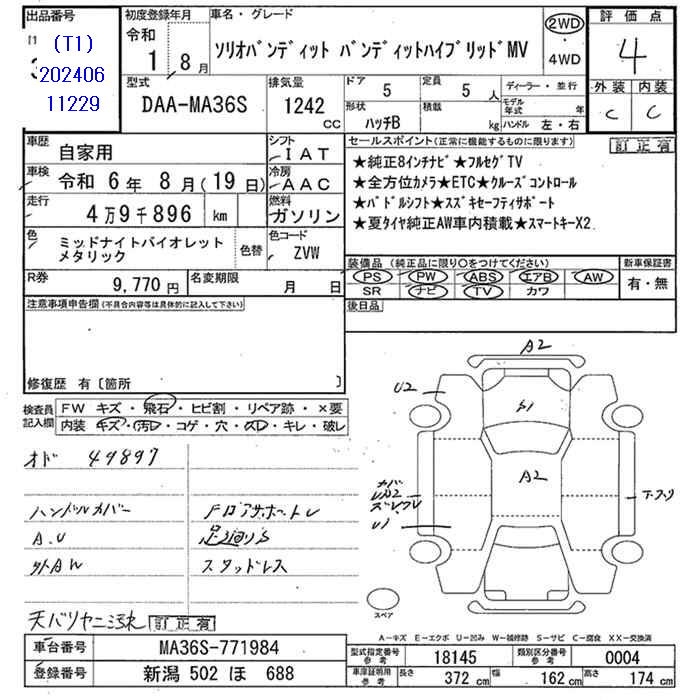 出品番号
(T1)
202406
11229
初度登録年月
令和
1 8 月
車名・グレード
ソリオバンディット バンディットハイブリッドMV
2WD
4WD
評価点
4
型式
DAA-MA36S
排気量
1242
CC
ドア
5
定員
5 人
形状
ハッチB
積載
kg
ディーラー・並行
モデル年式 年
ハンドル 左・右
外装 内装
C C
車歴
自家用
シフト
IAT
車検
令和 6年 8月(19日)
冷房
AAC
走行
4万9千896 km
燃料
ガソリン
色
ミッドナイトバイオレット
メタリック
色替
色コード
ZVW
R券
9,770円
名変期限
月 日
セールスポイント(正常に機能するものに限ります)
訂正有
★純正8インチナビ★フルセグTV
★全方位カメラ★ETC★クルーズコントロール
★パドルシフト★スズキセーフティサポート
★夏タイヤ純正AW車内積載★スマートキーX2
装備品(純正品に限り○をつけてください)
新車保証書
PS PW ABS エアB AW
SR ナビ TV カワ
有・無
注意事項申告欄(不具合内容等は具体的に記入して下さい)
後日品
修復歴 有〔箇所 〕
検査員
記入欄
FW キズ・飛石・ヒビ割・リペア跡・×要
内装 キズ・汚レ・コゲ・穴・スレ・キレ・破レ
オド 49897
ハンドルカバー
A.U
外AW
足廻りS
スタッドレス
訂正有
A2
U2
S1
A2
U1
スペア
A-キズ E-エクボ U-凹み W-補修跡 S-サビ C-腐食 XX-交換済
車台番号
MA36S-771984
登録番号
新潟 502 ほ 688
型式指定番号
参考
18145
類別区分番号
参考
0004
車庫証明用
参考
長さ
372 cm
幅
162 cm
高さ
174 cm